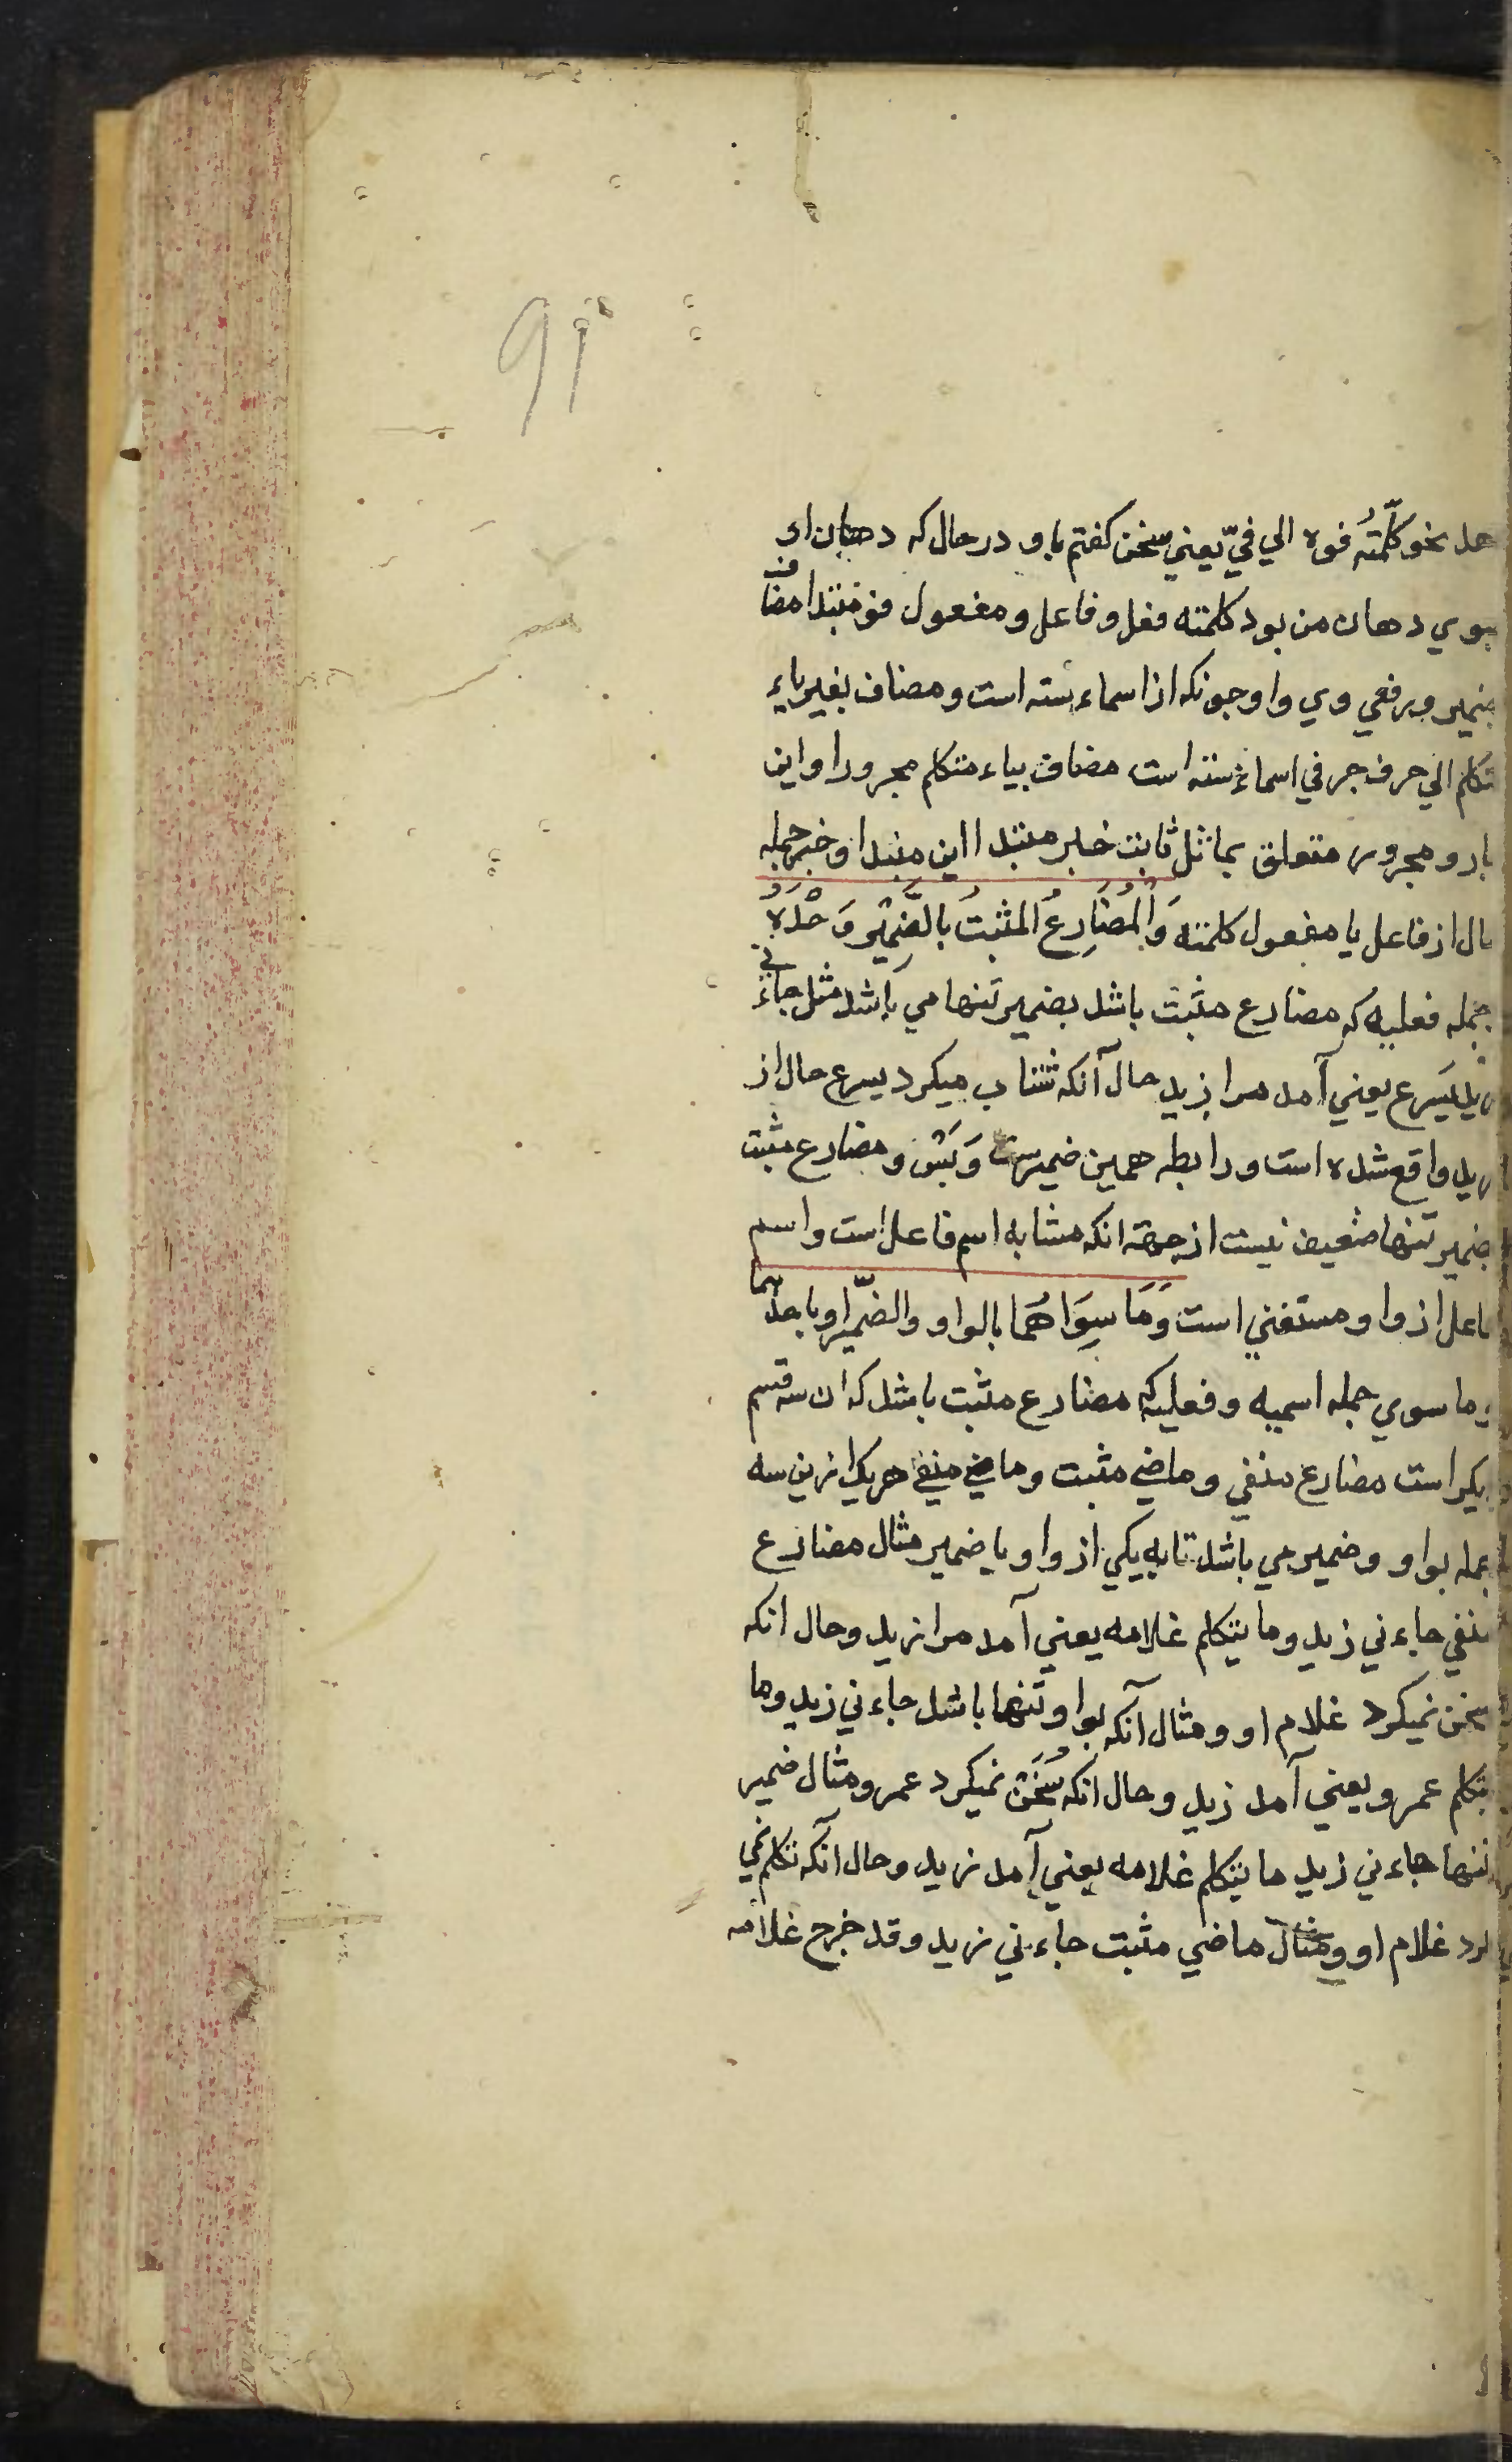 91
نحو كلّمتُه فوه الي فيّ يعني سخن كفتم باو در حال كه دهان او
بسوي دهان من بود كلمته فعل و فاعل و مفعول فو مبتدا مضاف
بضمير و رفعي وي واو چونكه از اسماء سته است و مضاف بغير ياء
متكلم الي حرف جر في اسماء سته است مضاف بياء متكلم مجرور او اين
جار و مجرور متعلق بماثل ثابت خبر مبتدا اين مبتدا و خبر جمله
حال از فاعل يا مفعول كلمته وَالْمُضَارِعُ المثبتُ بالضَّمِيْرِ وَحْدَهُ
جمله فعليه كه مضارع مثبت باشد بضمير تنها مي باشد مثل جاءني
زيد يَسرع يعني آمد مرا زيد حال آنكه شتاب ميكرد يسرع حال از
زيد واقع شده است و رابطه همين ضميرست وَبَسْ و مضارع مثبت
بضمير تنها ضعيف نيست از جهة انكه مشابه اسم فاعل است و اسم
فاعل از واو مستغني است وَمَا سِوَاهُمَا بالواو والضّمير او باحدهما
و ما سوي جمله اسميه و فعليه كه مضارع مثبت باشد كه ان سه قسم
ديكر است مضارع منفي و ماضي مثبت و ماضي منفي هريك ازين سه
جمله بواو و ضمير مي باشد تا به يكي از واو يا ضمير مثال مضارع
منفي جاءني زيد وما يتكلم غلامه يعني آمد مرا زيد و حال انكه
سخن نميكرد غلام او و مثال آنكه بواو تنها باشد جاءني زيد وما
يتكلم عمرو يعني آمد زيد و حال انكه سُخَن نميكرد عمرو مثال ضمير
تنها جاءني زيد ما يتكلم غلامه يعني آمد زيد و حال آنكه تكلم نمي
كرد غلام او و مثال ماضي مثبت جاءني زيد وقد خرج غلامه